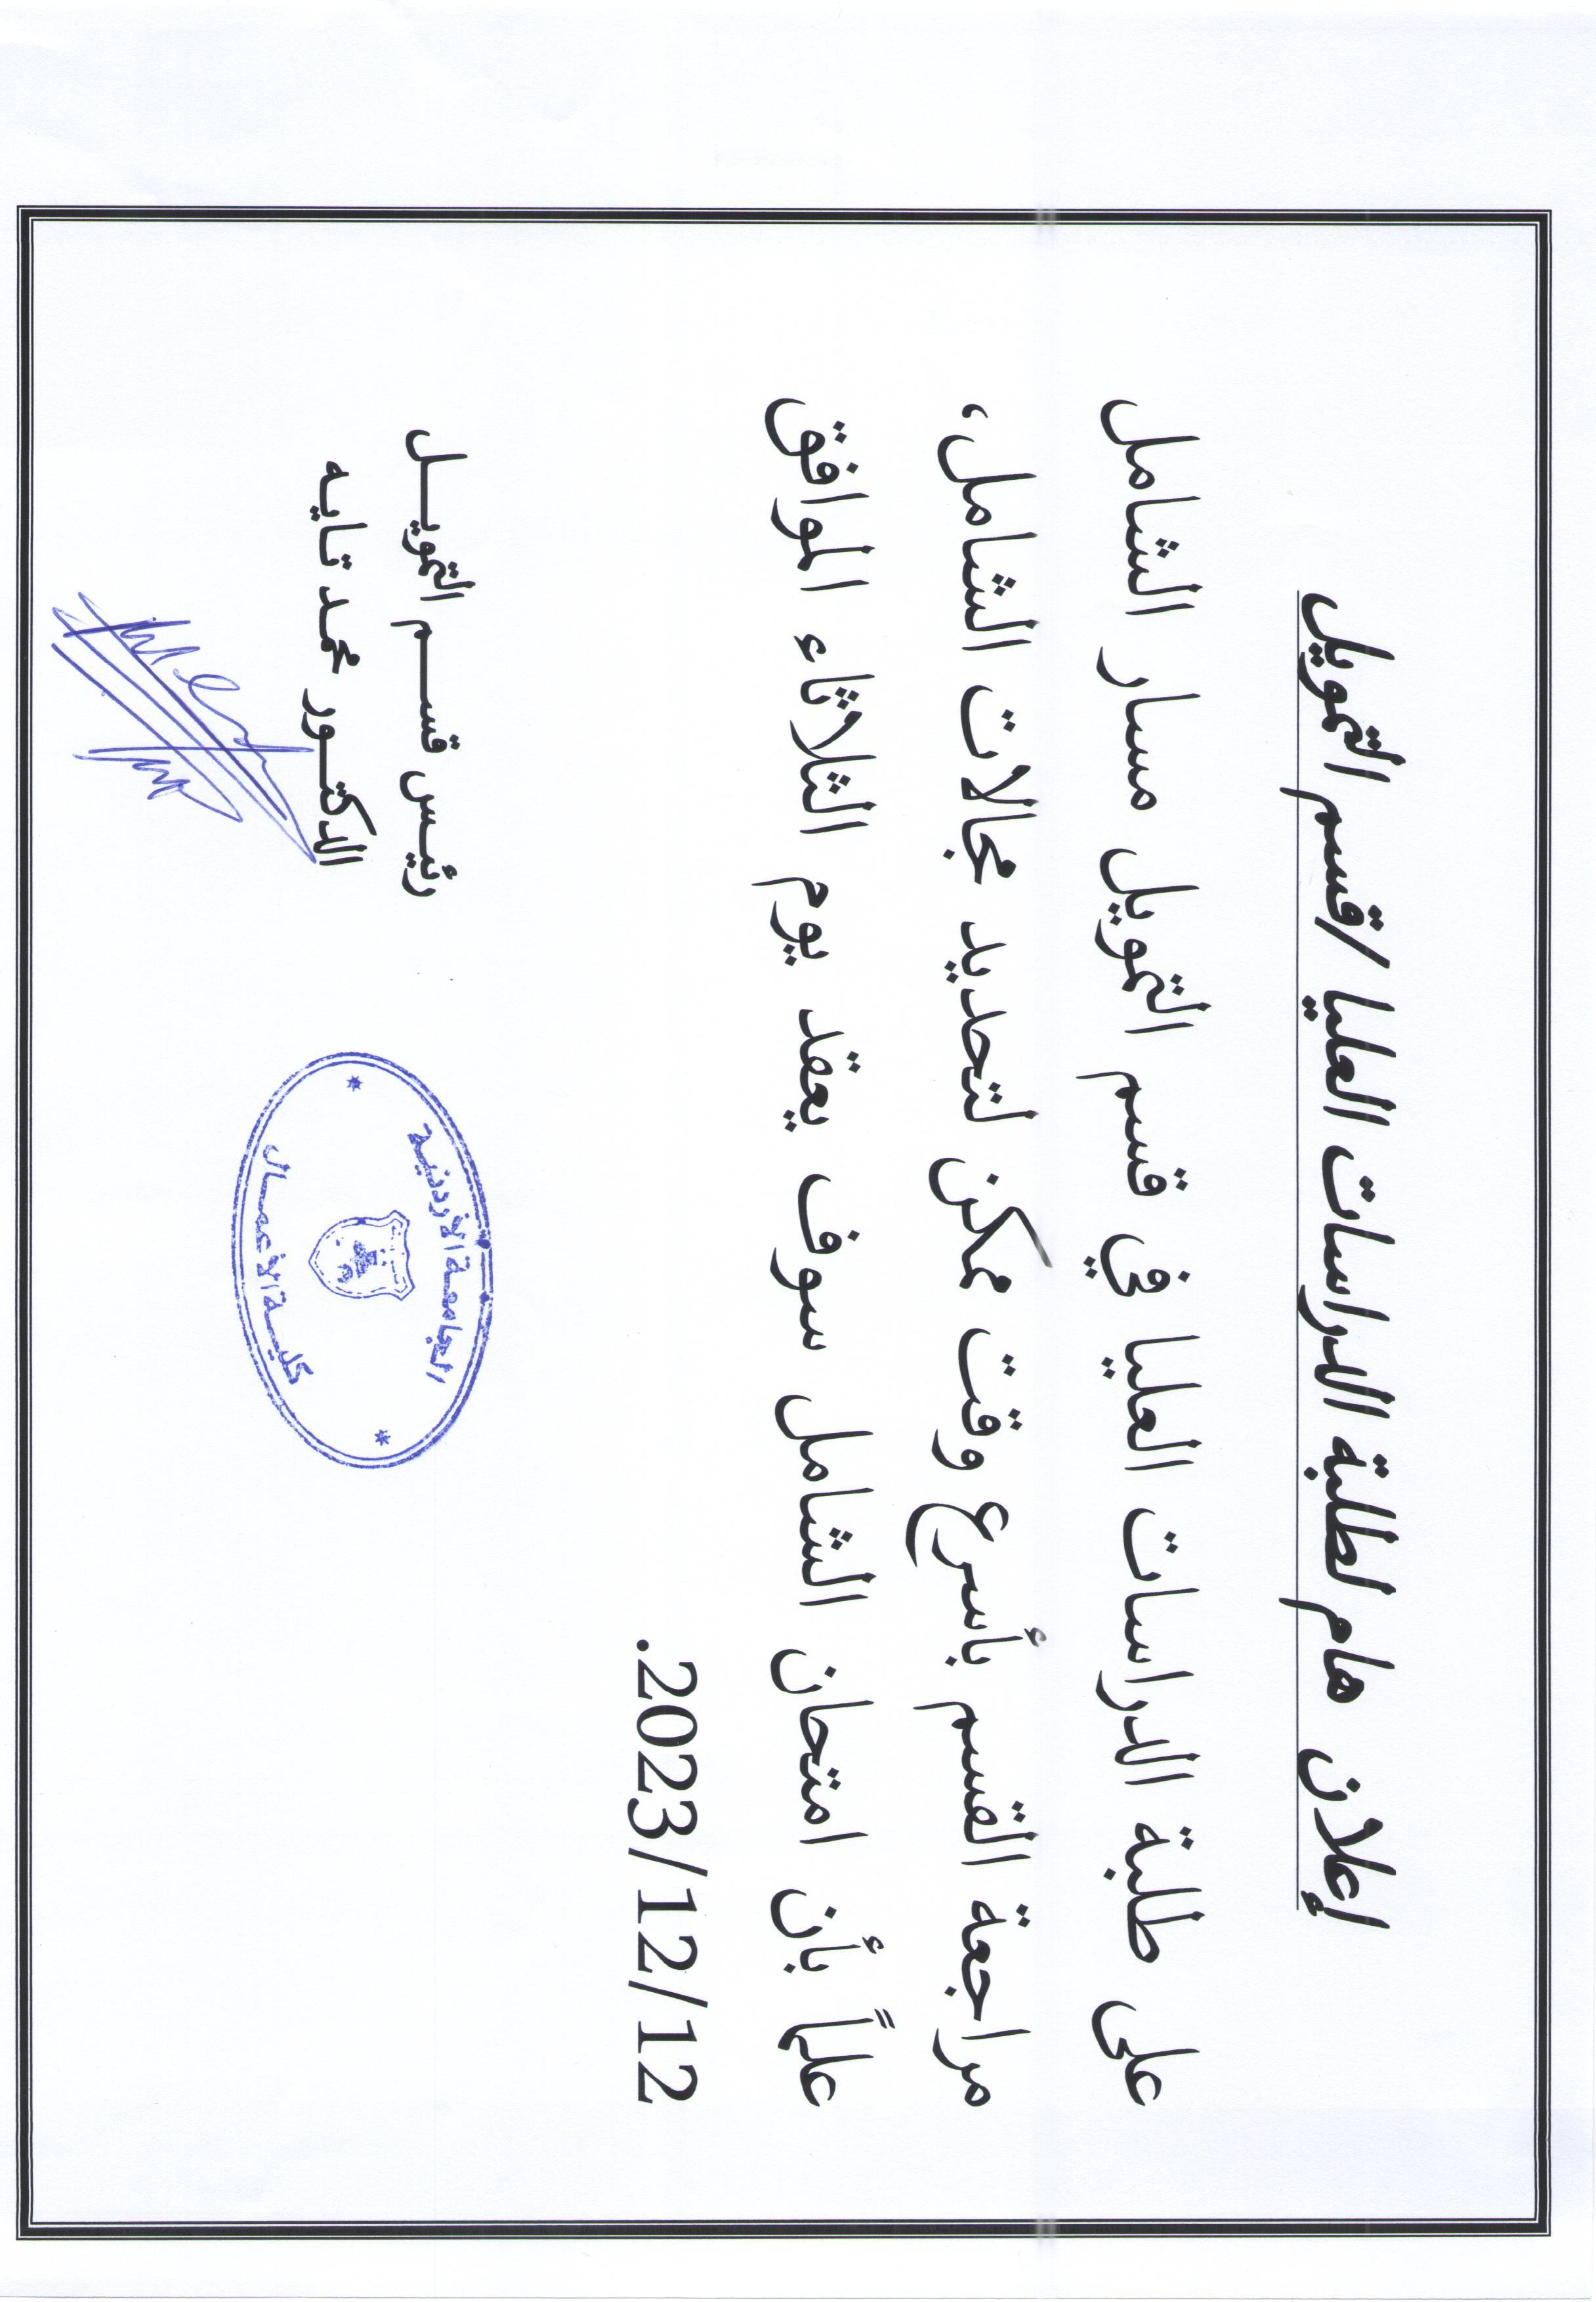 إعلان هام لطلبة الدراسات العليا /قسم التمويل
على طلبة الدراسات العليا في قسم التمويل مسار الشامل
مراجعة القسم بأسرع وقت ممكن لتحديد مجالات الشامل،
علماً بأن امتحان الشامل سوف يعقد يوم الثلاثاء الموافق
2023/12/12.
رئيس قسم التمويل
الدكتور محمد تايه
الجامعة الأردنية
كلية الأعمال